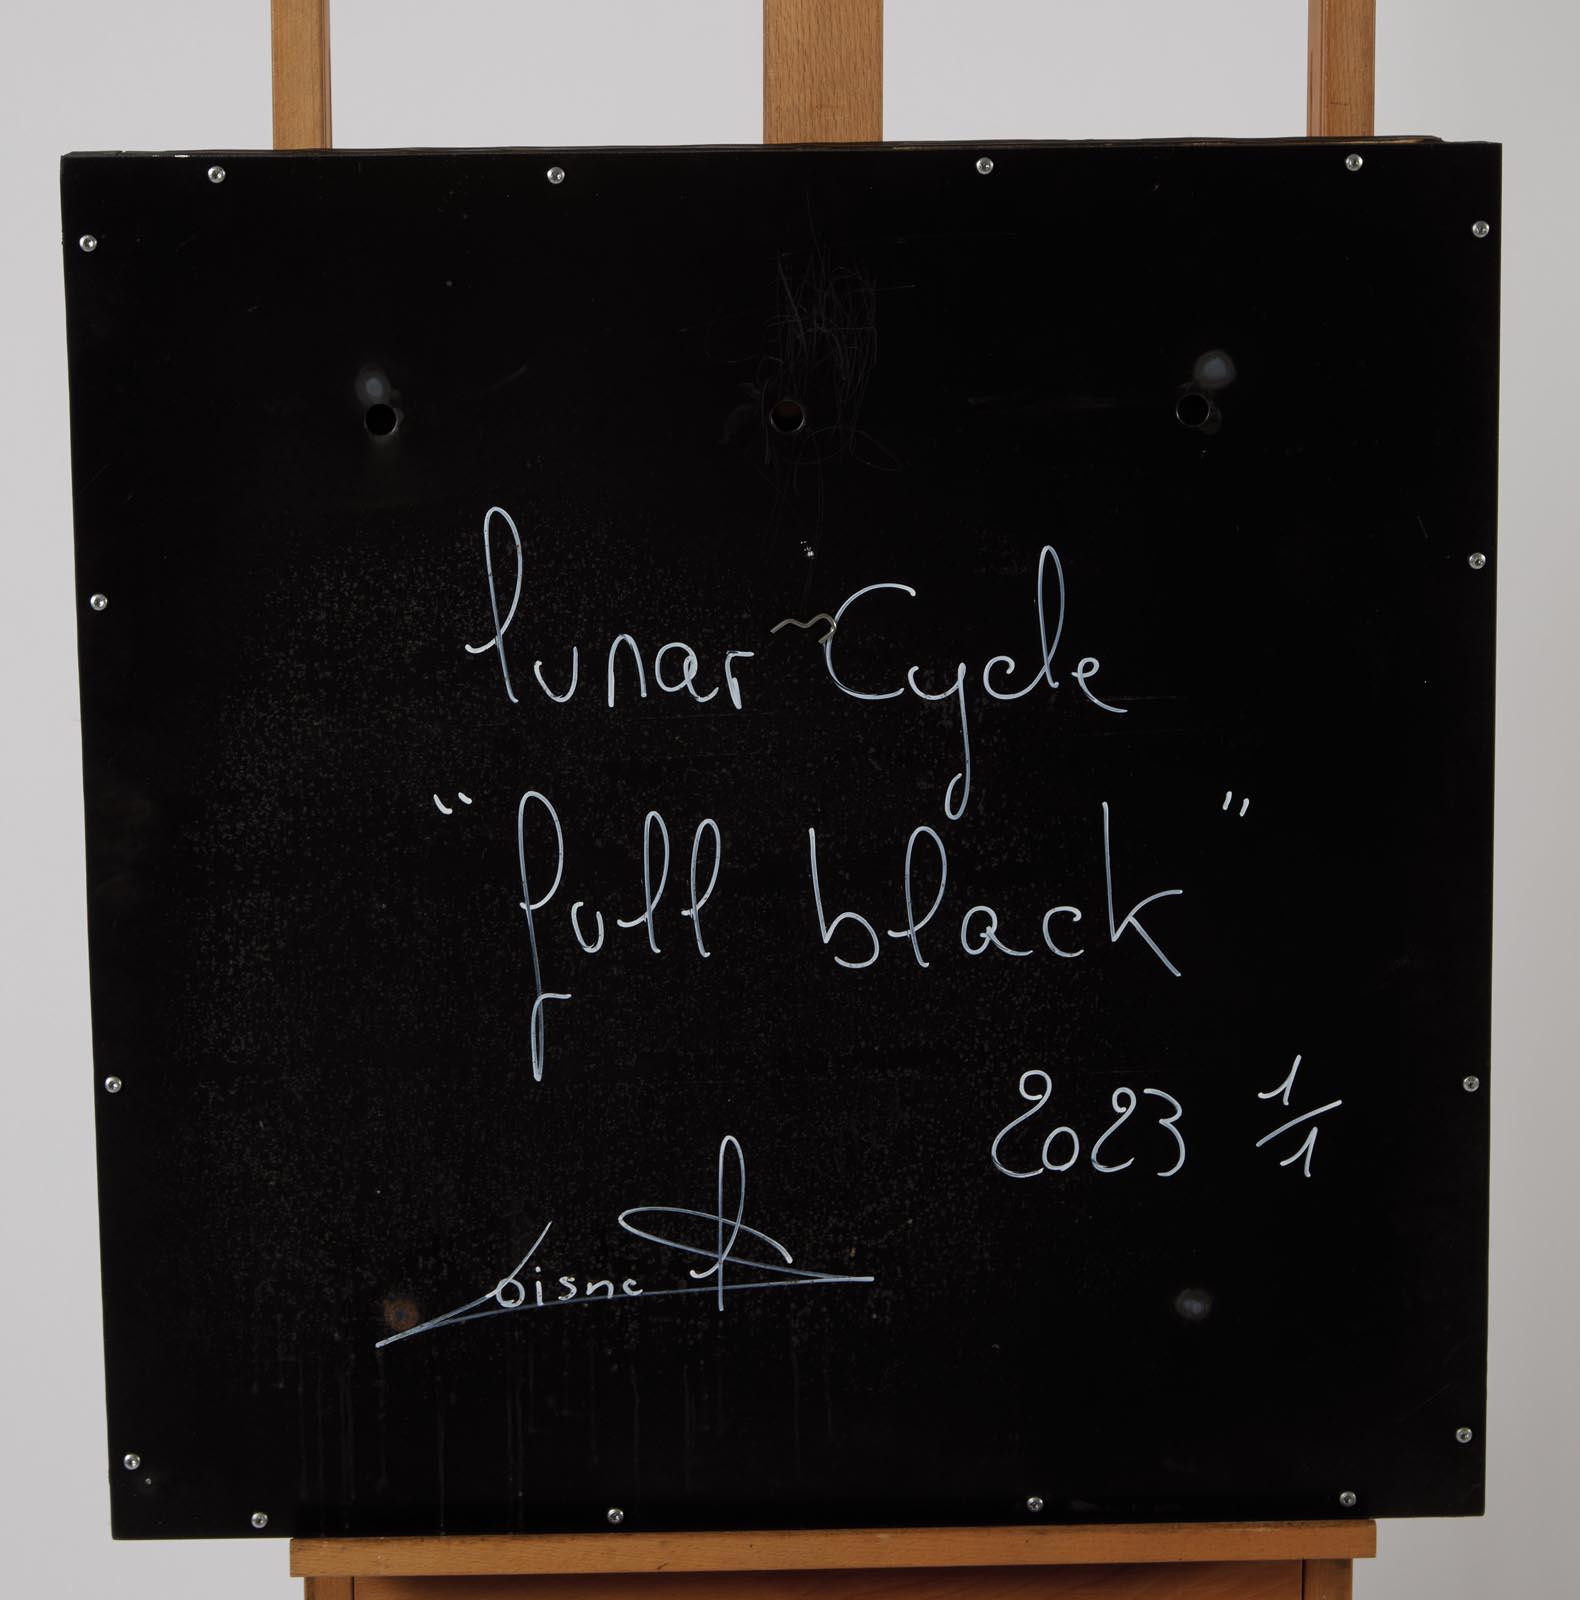 lunar Cycle
"full black"
2023 1/1